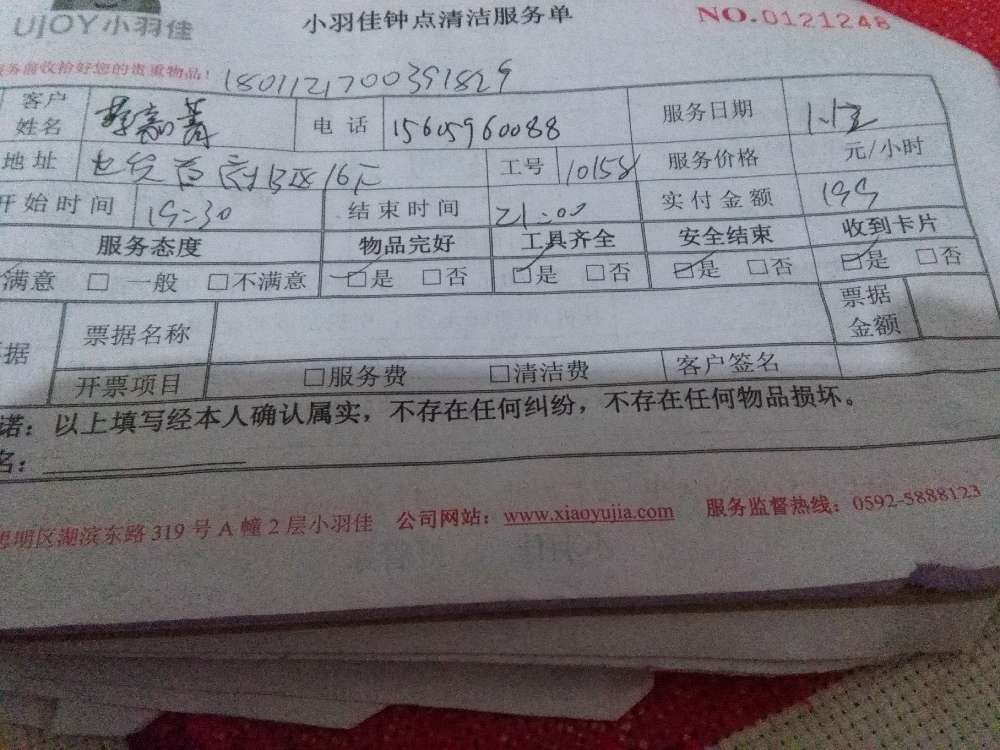 UJOY小羽佳 小羽佳钟点清洁服务单 NO.0121248
务前收拾好您的贵重物品! 1801121700391829
客户姓名 电话 15605960088 服务日期 1.12
地址 16F 工号 10158 服务价格 元/小时
开始时间 19:30 结束时间 21:00 实付金额 199
服务态度 物品完好 工具齐全 安全结束 收到卡片
满意 □ 一般 □不满意 □是 □否 □是 □否 □是 □否 □是 □否
据 票据名称 票据金额
开票项目 □服务费 □清洁费 客户签名
诺:以上填写经本人确认属实,不存在任何纠纷,不存在任何物品损坏。
名:
思明区湖滨东路319号A幢2层小羽佳 公司网站:www.xiaoyujia.com 服务监督热线:0592-5888123